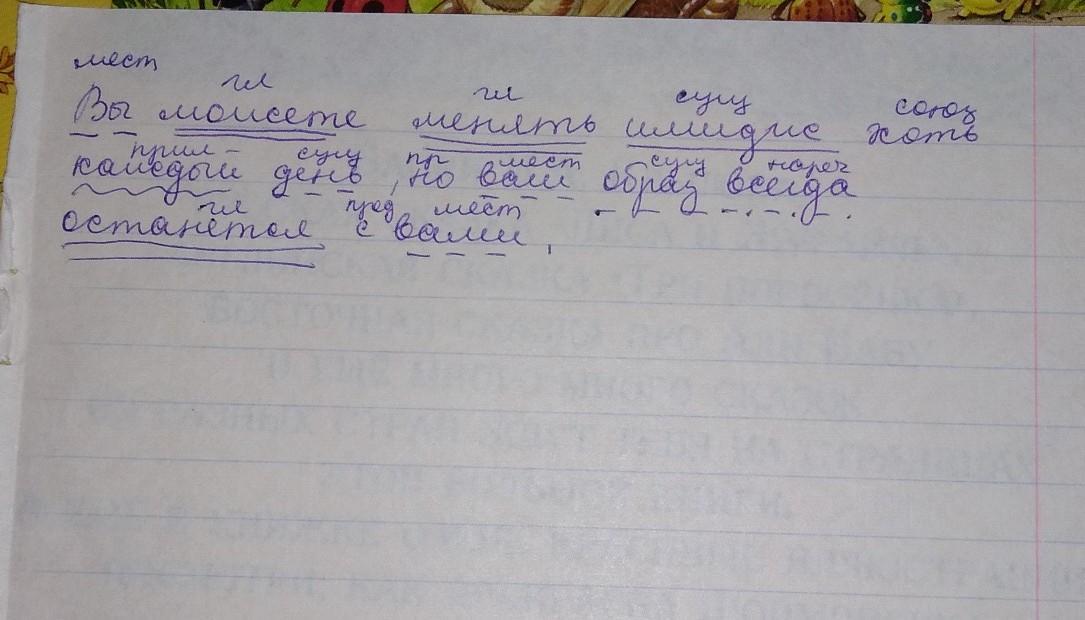 мест
гл гл сущ союз
Вы можете менять имидж хоть
прил- сущ пр мест сущ нареч
каждый день, но ваш образ всегда
гл пред мест
останется с вами,